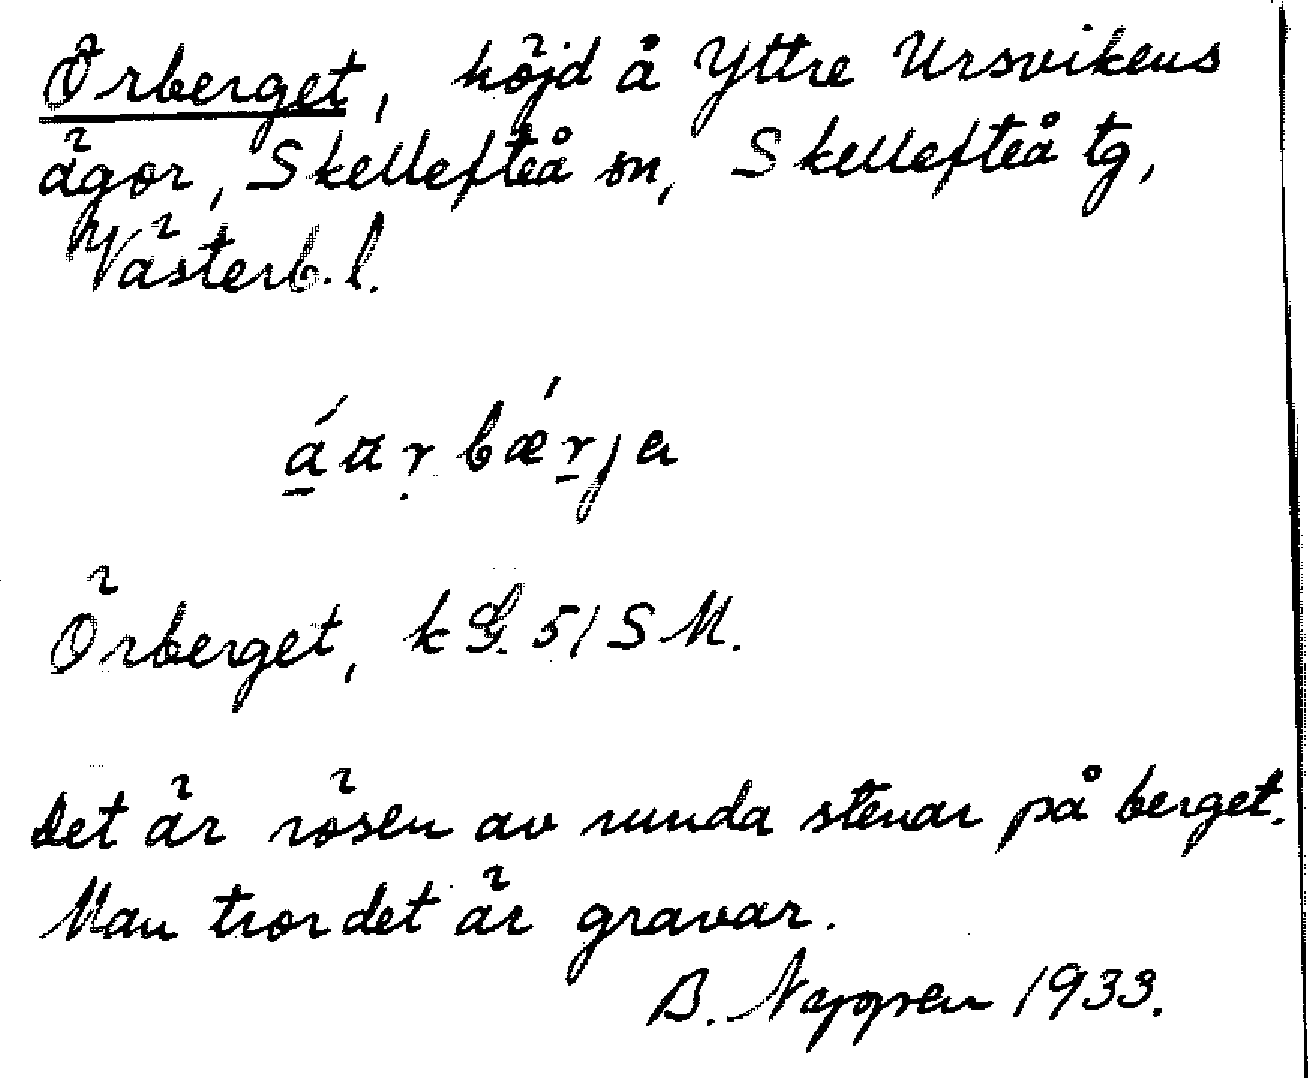 Örberget, höjd å Yttre Ursvikens
ägor, Skellefteå sn, Skellefteå tg,
Västerb. l.
Örberget, k G. 51 S M.
Det är rösen av runda stenar på berget.
Man tror det är gravar.
B. 1933.